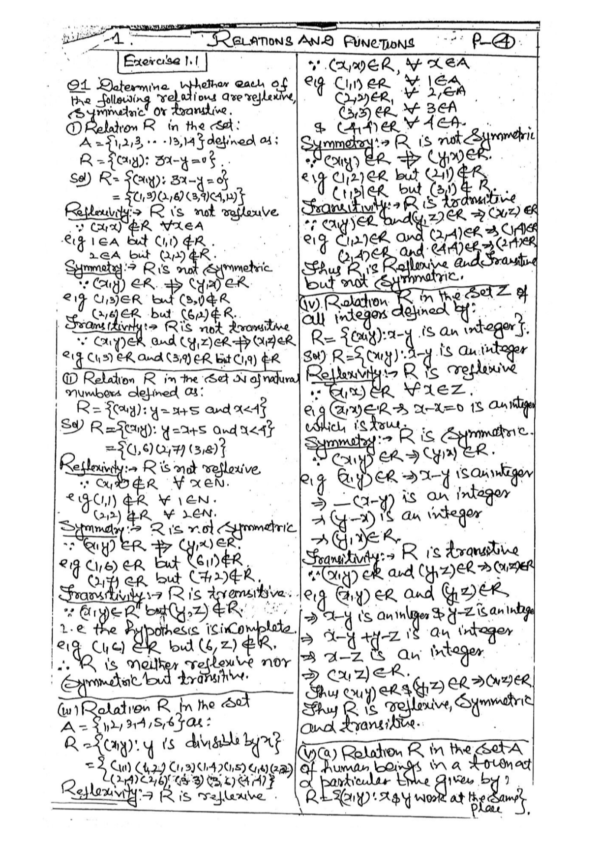 1. RELATIONS AND FUNCTIONS P-4
Exercise 1.1
Q1 Determine whether each of
the following relations are reflexive,
symmetric or transtive.
(i) Relation R in the set:
A = {1,2,3 ... 13,14} defined as:
R = {(x,y): 3x-y=0}
Sol) R = {(x,y): 3x-y=0}
= {(1,3)(2,6)(3,9)(4,12)}
Reflexivity:→ R is not reflexive
∵ (x,x) ∉R ∀x∈A
e.g 1∈A but (1,1) ∉R.
2∈A but (2,2) ∉R.
Symmetry:→ R is not symmetric
∵ (x,y) ∈R ⇏ (y,x)∈R.
e.g (1,3)∈R but (3,1)∉R
(2,6)∈R but (6,2)∉R.
Transitivity:→ R is not transitive
∵ (x,y)∈R and (y,z)∈R ⇏ (x,z)∈R
e.g (1,3)∈R and (3,9)∈R but (1,9)∉R
(ii) Relation R in the set N of natural
numbers defined as:
R = {(x,y): y=x+5 and x<4}
Sol) R = {(x,y): y=x+5 and x<4}
= {(1,6)(2,7)(3,8)}
Reflexivity:→ R is not reflexive
∵ (x,x) ∉R ∀ x∈N.
e.g (1,1) ∉R ∀ 1∈N.
(2,2) ∉R ∀ 2∈N.
Symmetry:→ R is not symmetric
∵ (x,y) ∈R ⇏ (y,x)∈R.
e.g (1,6)∈R but (6,1)∉R.
(2,7)∈R but (7,2)∉R.
Transitivity:→ R is transitive.
∵ (x,y)∈R but (y,z)∉R.
i.e the hypothesis is incomplete
e.g (1,6)∈R but (6,z)∉R.
∴ R is neither reflexive nor
symmetric but transitive.
(iii) Relation R in the set
A = {1,2,3,4,5,6} as:
R = {(x,y): y is divisible by x}
= {(1,1)(1,2)(1,3)(1,4)(1,5)(1,6)(2,2)
(2,4)(2,6)(3,3)(3,6)(4,4)}
Reflexivity:→ R is reflexive.
∵ (x,x)∈R, ∀ x∈A
e.g (1,1)∈R ∀ 1∈A
(2,2)∈R, ∀ 2∈A
(3,3)∈R ∀ 3∈A
& (4,4)∈R ∀ 4∈A.
Symmetry:→ R is not symmetric
∵ (x,y)∈R ⇏ (y,x)∈R.
e.g (1,2)∈R but (2,1)∉R
(1,3)∈R but (3,1)∉R.
Transitivity:→ R is transitive
∵ (x,y)∈R and (y,z)∈R ⇒ (x,z)∈R
e.g (1,2)∈R and (2,4)∈R ⇒ (1,4)∈R
(2,4)∈R and (4,4)∈R ⇒ (2,4)∈R
Thus R is Reflexive and Transitive
but not symmetric.
(iv) Relation R in the set Z of
all integers defined by:
R = {(x,y): x-y is an integer}.
Sol) R = {(x,y): x-y is an integer
Reflexivity:→ R is reflexive
∵ (x,x)∈R ∀x∈Z.
e.g (x,x)∈R ⇒ x-x=0 is an integer
which is true.
Symmetry:→ R is symmetric.
∵ (x,y)∈R ⇒ (y,x)∈R.
e.g (x,y)∈R ⇒ x-y is an integer
⇒ -(x-y) is an integer
⇒ (y-x) is an integer
⇒ (y,x)∈R.
Transitivity:→ R is transitive
∵ (x,y)∈R and (y,z)∈R ⇒ (x,z)∈R
e.g (x,y)∈R and (y,z)∈R
⇒ x-y is an integer & y-z is an integer
⇒ x-y+y-z is an integer
⇒ x-z is an integer
⇒ (x,z)∈R.
Thus (x,y)∈R & (y,z)∈R ⇒ (x,z)∈R
Thus R is reflexive, symmetric
and transitive.
(v)(a) Relation R in the set A
of human beings in a town at
a particular time given by:
R = {(x,y): x & y work at the same
place}.